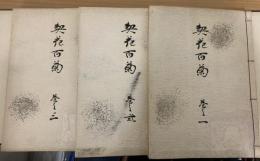 契花百菊
巻一
契花百菊
巻弐
契花百菊
巻三